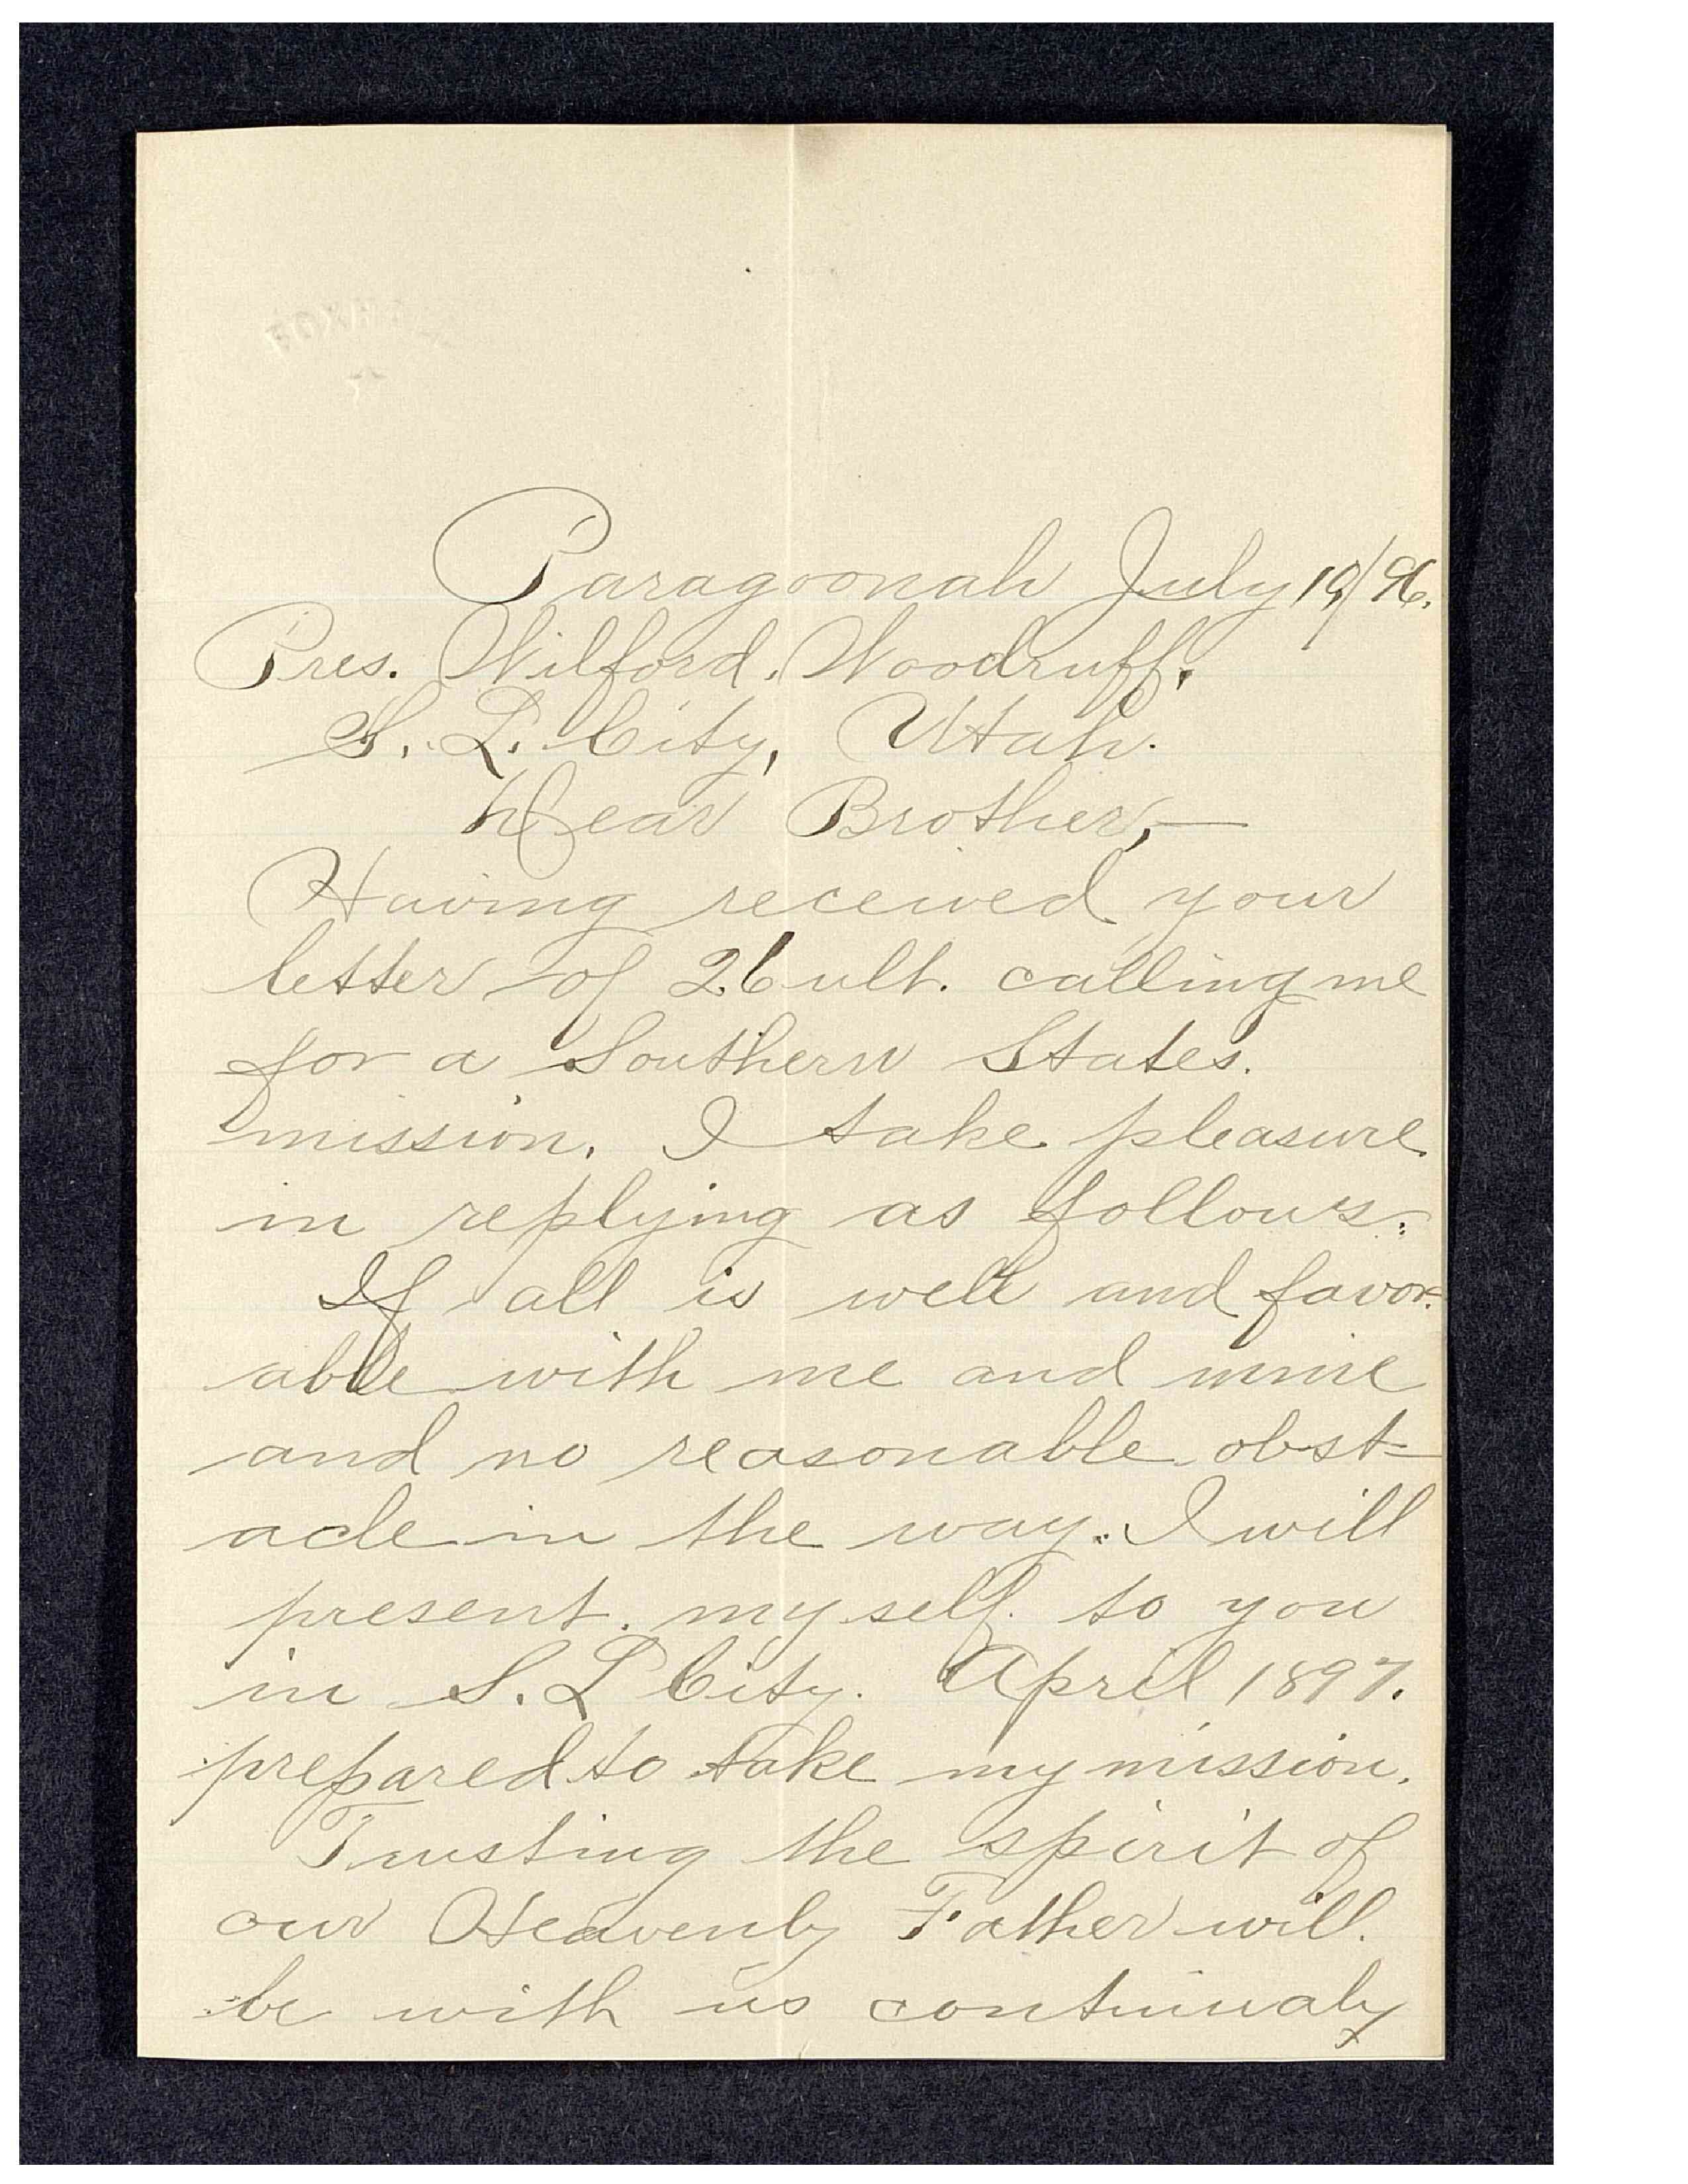 Paragoonah July 19/96.
Pres. Wilford. Woodruff.
S. L. City, Utah.
Dear Brother,—
Having received your
letter of 26 ult. calling me
for a Southern States.
mission. I take pleasure
in replying as follows:
If all is well and favor-
able with me and mine
and no reasonable obst-
acle in the way. I will
present myself to you
in S. L City. April 1897.
prepared to take my mission.
Trusting the spirit of
our Heavenly Father will.
be with us continualy